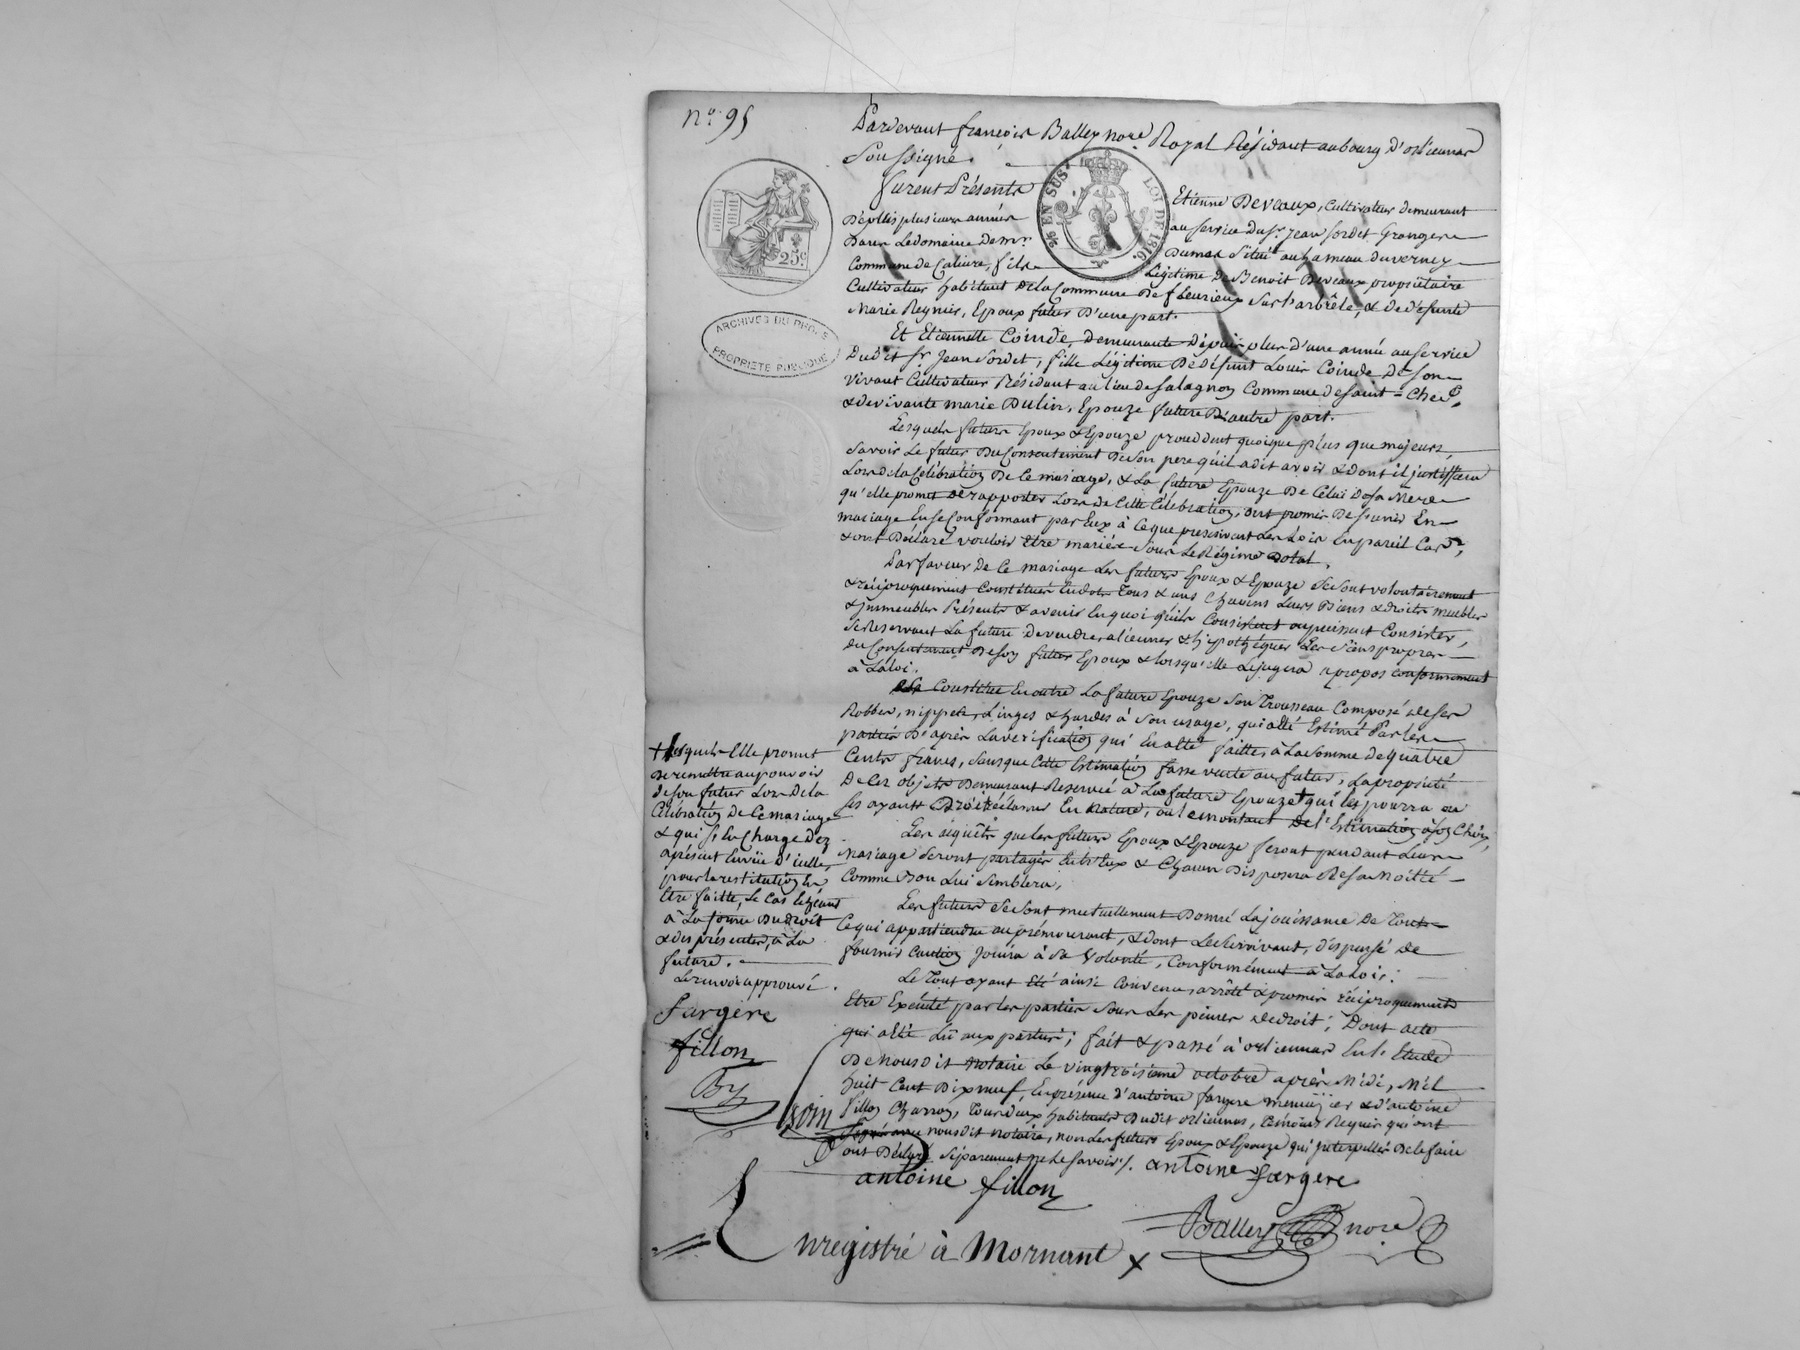 no. 95
Pardevant françois Balley nore Royal Résidant au bourg D'orlienas
Soussigné.
furent Présents
Etienne Deveaux, Cultivateur demeurant
Depuis plusieurs années
au service du Sr. Jean Sordet Granger
Dans Le domaine de mr.
Dumas Situé au hameau du verney
Commune de Caluire, fils
Légitime de Benoit Deveaux propriétaire
Cultivateur habitant de la Commune De fleurieux Sur L'arbrêle, & de défunte
Marie Reynier, Epoux futur D'une part.
Et Etiennette Coinde, demeurante Depuis plus d'une année au service
Dudit Sr. Jean Sordet, fille Légitime De défunt Louis Coinde, De son
vivant Cultivateur Résidant au lieu de Salagnon Commune de Saint = Chef,
& de vivante marie Dulin, Epouze future D'autre part.
Lesquels futurs Epoux & Epouze procedent quoique plus que majeurs,
Savoir Le futur Du Consentement De Son pere qu'il a dit avoir & dont il justiffiera
Lors de la Célébration De Ce mariage, & La future Epouze De Celui de sa Mere
qu'elle promet de rapporter Lors de Cette Célébration, ont promis De s'unir En
mariage En se Conformant par Eux à Ce que prescrivent Les Lois En pareil Cas,
& ont Déclaré vouloir Etre mariés Sous Le Régime Dotal.
Par faveur de Ce mariage Les futurs Epoux & Epouze Se sont volontairement
& réciproquement Constitués En dot Tous & uns Chacuns Leurs Biens & droits meubles
& immeubles Présents & avenir En quoi qu'ils Consistent ou puissent Consister,
Se Reservant La future De vendre, aliener & hypothéquer Ses Biens propres
du Consentement De son futur Epoux & lorsqu'elle Le jugera apropos Conformément
à La Loi.
Se Constitue En outre La future Epouze Son Trousseau Composé de ses
Robbes, nippes, Linges & hardes à Son usage, qui a été Estimé Par les
parties D'après La verification qui En a été faitte, à La Somme de quatre
Cents francs, Sans que Cette Estimation fasse vente au futur, La propriété
De Ces objets Demeurant Reservée à La future Epouze + qui les pourra ou
ses ayants Droit Réclamer En nature, ou le montant De l'Estimation à son Choix,
Les aiquêts que les futurs Epoux & Epouze feront pendant Leur
Mariage Seront partagés Entr'Eux & Chacun Disposera De sa Moitié
Comme Bon Lui Semblera,
Les futurs Se Sont mutuellement Donné La jouissance De Tout
Ce qui appartiendra au prémourant, & dont Le Survivant, dispensé de
fournir Caution Jouira à Sa Volonté, Conformément à La Loi;
Le Tout ayant Eté ainsi Convenu, arrêté & promis réciproquement
Etre Exécuté par les parties Sous Les peines de droit; Dont acte
qui a été Lu aux parties; fait & passé à orlienas En l'Etude
De nous dit notaire Le vingtroisieme octobre après Midi, Mil
huit Cent Dixneuf, En présence d'antoine fargere menuijier & d'antoine
fillon Charron, Tous deux habitants Dudit orlienas, Témoins Requis qui ont
Signé avec nous dit notaire, non Les futurs Epoux & Epouze qui interpellés De le faire
ont Déclaré Séparement ne Le Savoir ./.
antoine fargere
antoine fillon
Balley nore
Enregistré à Mornant
+ Lesquels Elle promet
De remettre au pouvoir
de son futur Lors De la
Célébration De Ce mariage
& qui S'En Charge Dez
aprésent En vüe d'icelle,
pour la restitution En
Etre faitte, le Cas Echéant
à La forme Du droit
& des présentes, à La
future.
Le renvoi approuvé.
fargere
fillon
By
ARCHIVES DU RHÔNE
PROPRIÉTÉ PUBLIQUE
25 c
EN SUS
LOI DE 1816